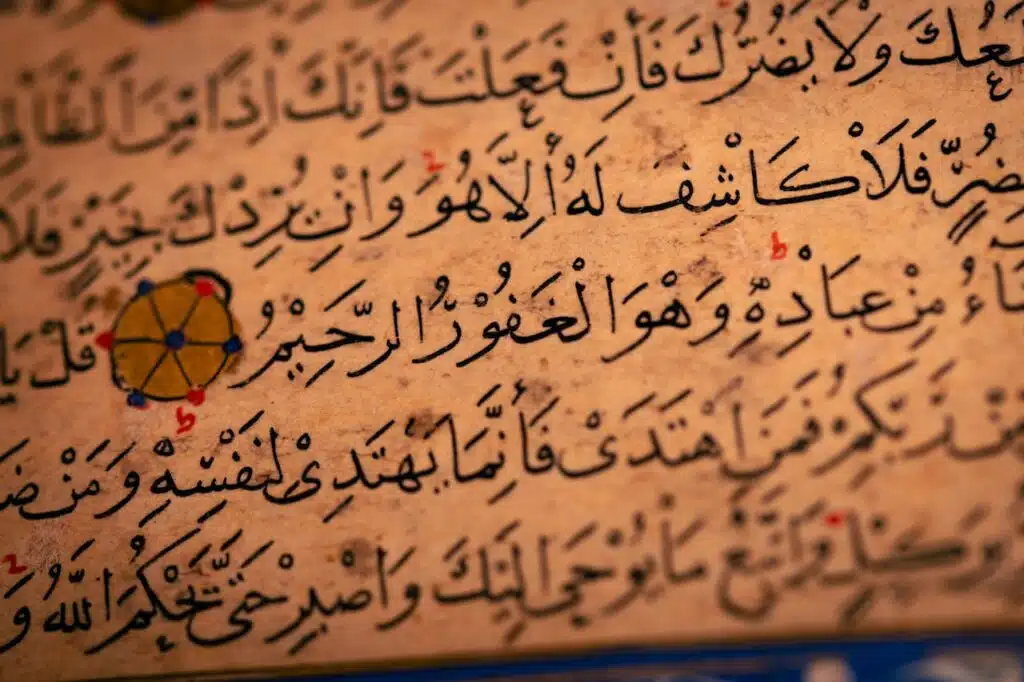 وَلَا يَضُرُّكَ فَاِنْ فَعَلْتَ فَاِنَّكَ اِذًا مِنَ الظَّالِمِ
بِضُرٍّ فَلَا كَاشِفَ لَهُ اِلَّا هُوَ وَاِنْ يُرِدْكَ بِخَيْرٍ فَلَا
مِنْ عِبَادِهِ وَهْوَ الْغَفُوْرُ الرَّحِيْمُ قُلْ يَا
مِنْ رَبِّكُمْ فَمَنِ اهْتَدَىْ فَاِنَّمَا يَهْتَدِىْ لِنَفْسِهْ وَمَنْ ضَ
بِوَكِيْلٍ وَاتَّبِعْ مَا يُوْحَى اِلَيْكَ وَاصْبِرْ حَتَّى يَحْكُمَ اللّٰهُ وَ